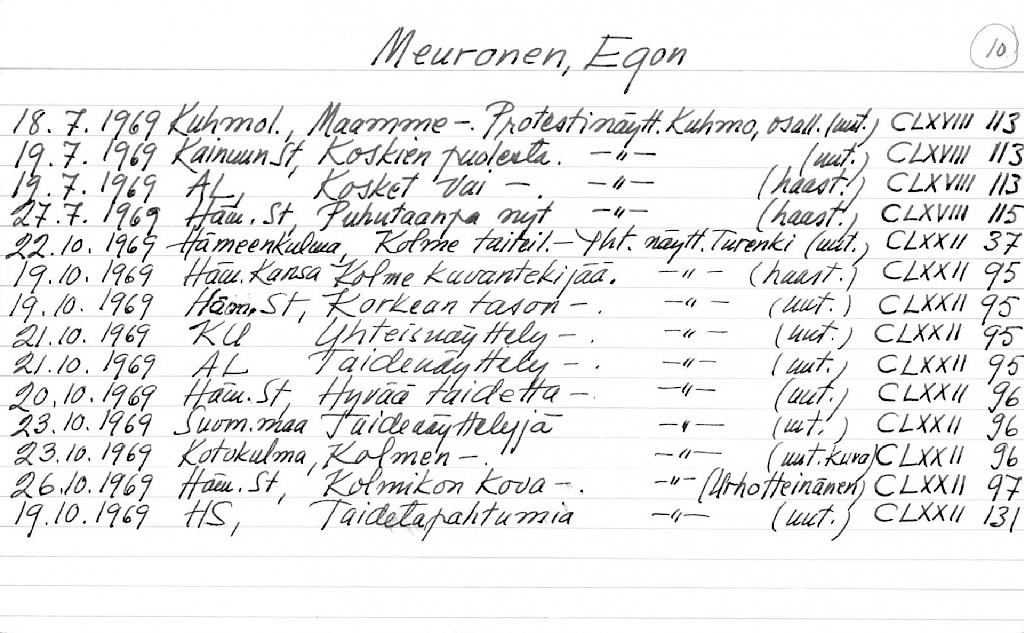 Meuronen, Egon
10
18. 7. 1969 Kuhmol., Maamme -. Protestinäytt. Kuhmo, osall. (uut.) CLXVIII 113
19. 7. 1969 Kainuun St, Koskien puolesta. -"- (uut.) CLXVIII 113
19. 7. 1969 AL, Kosket vai -. -"- (haast.) CLXVIII 113
27. 7. 1969 Häm. St, Puhutaanpa nyt -"- (haast.) CLXVIII 115
22. 10. 1969 Hämeenkulma, Kolme taiteil. - Yht. näytt. Turenki (uut.) CLXXII 37
19. 10. 1969 Häm. Kansa Kolme kuvantekijää. -"- (haast.) CLXXII 95
19. 10. 1969 Häm. St, Korkean tason -. -"- (uut.) CLXXII 95
21. 10. 1969 KU Yhteisnäyttely -. -"- (uut.) CLXXII 95
21. 10. 1969 AL Taidenäyttely -. -"- (uut.) CLXXII 95
20. 10. 1969 Häm. St, Hyvää taidetta -. -"- (uut.) CLXXII 96
23. 10. 1969 Suom. maa Taidenäyttelyjä -"- (uut.) CLXXII 96
23. 10. 1969 Kotokulma, Kolmen -. -"- (uut. kuva) CLXXII 96
26. 10. 1969 Häm. St, Kolmikon kova -. -"- (Urho Heinänen) CLXXII 97
19. 10. 1969 HS, Taidetapahtumia -"- (uut.) CLXXII 131